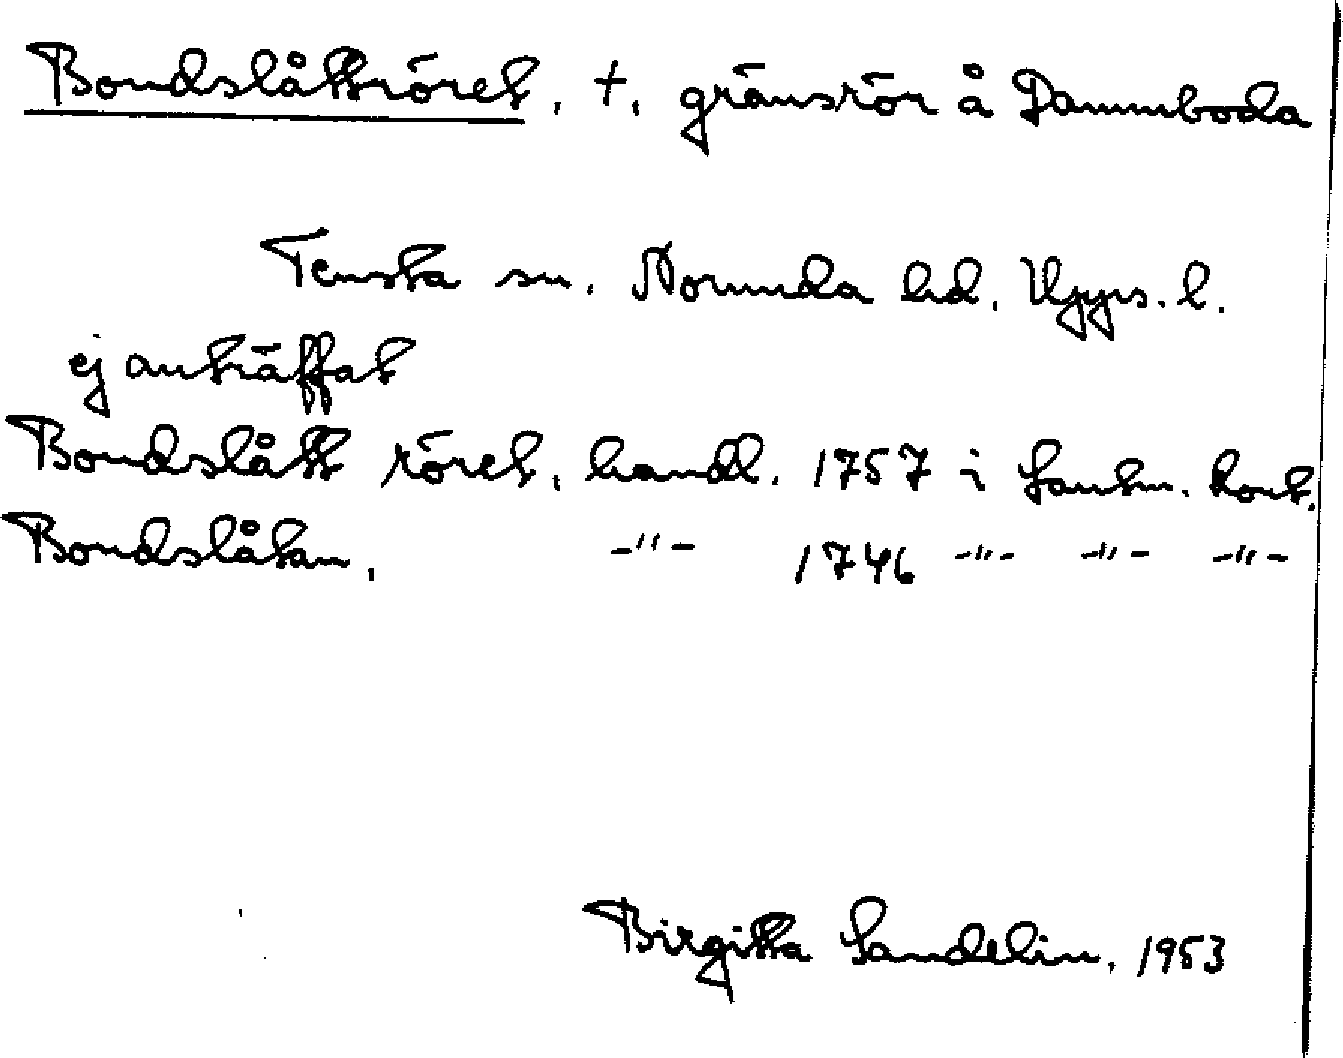 Bondslåttröret, +, gränsrör å Dammboda
Tensta sn. Norunda hd. Upps. l.
ej anträffat
Bondslått röret, handl. 1757 i Lantm. kont.
Bondslåtan, -"- 1746 -"- -"- -"-
Birgitta Sandelin, 1953